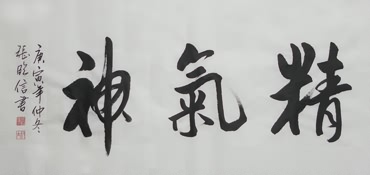 精氣神
庚寅年仲冬
張昭信書